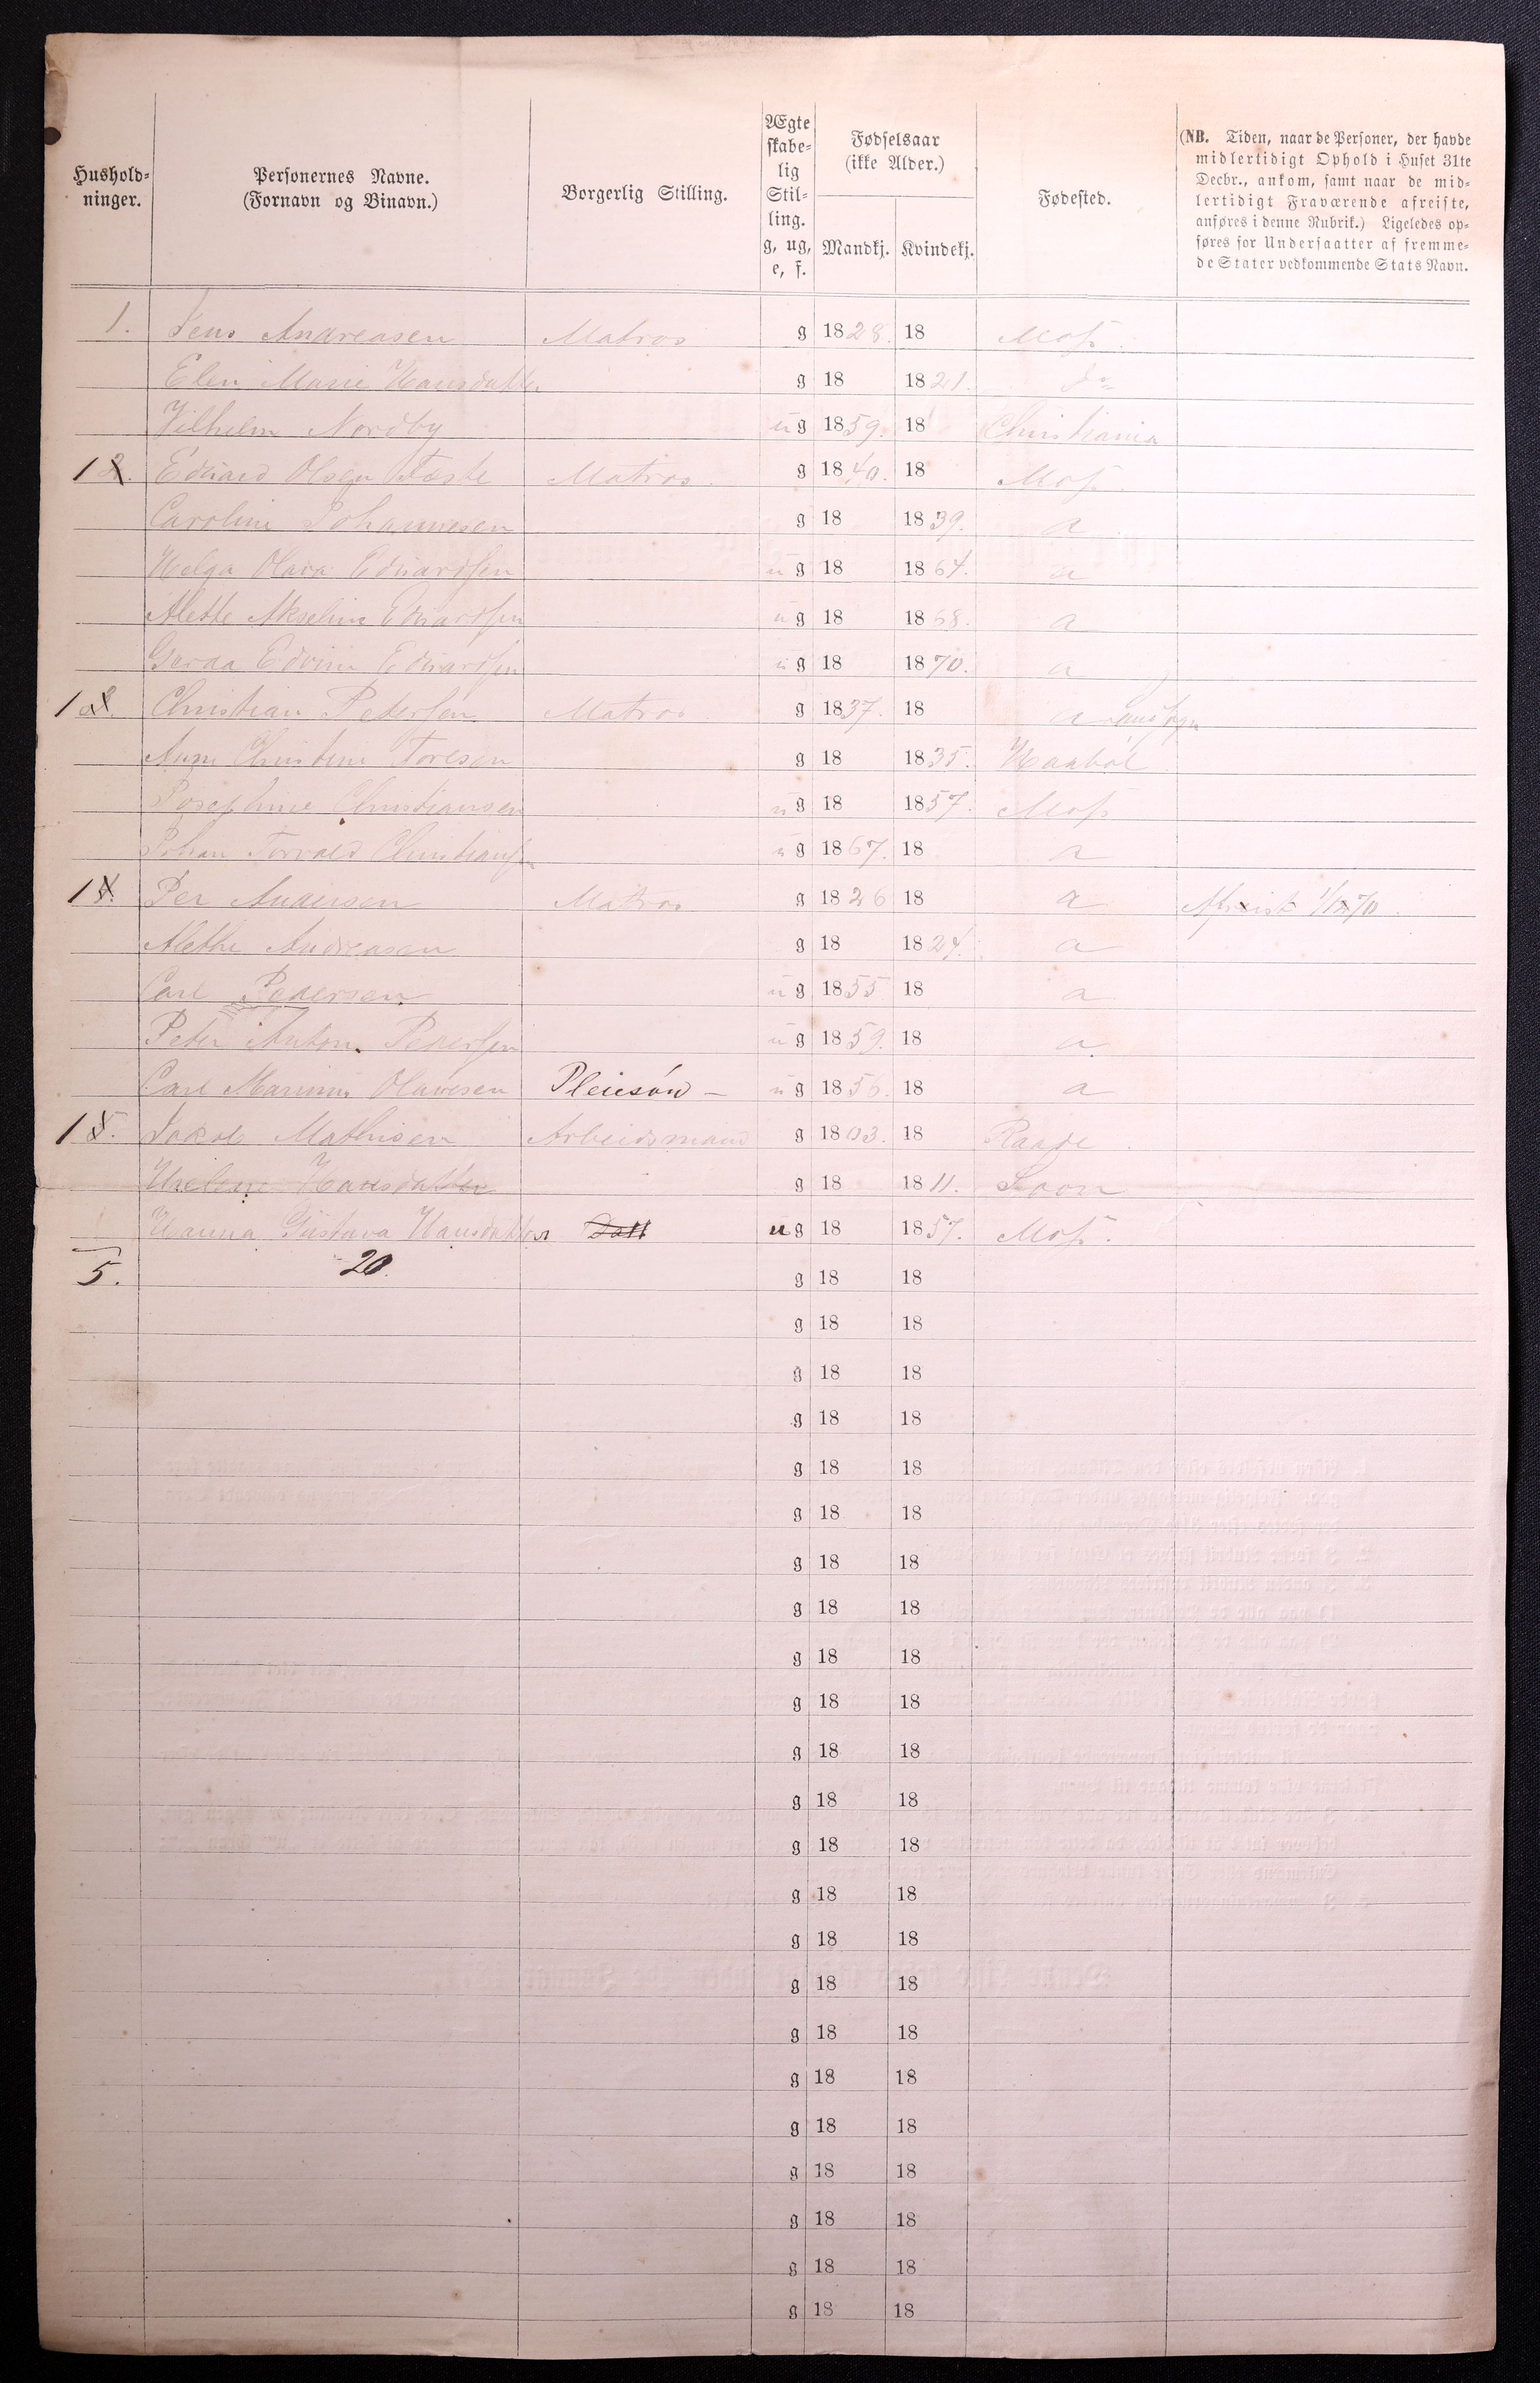 Hushold-
ninger.
Personernes Navne.
(Fornavn og Binavn.)
Borgerlig Stilling.
Ægte
skabe-
lig
Stil-
ling.
g, ug,
e, f.
Fødselsaar
(ikke Alder.)
Mandkj. Kvindekj.
Fødested.
(NB. Tiden, naar de Personer, der havde
midlertidigt Ophold i Huset 31te
Decbr., ankom, samt naar de mid-
lertidigt Fraværende afreiste,
anføres i denne Rubrik.) Ligeledes op-
føres for Undersaatter af fremme-
de Stater vedkommende Stats Navn.
1. Jens Andreasen Matros g 1828. 18 Moss.
Elen Marie Hansdatter g 18 1821. do
Vilhelm Nordby ug 1859. 18 Christiania
1 2. Edvard Olsen Matros g 1840. 18 Moss.
Caroline Johannesen g 18 1839. a
Helga Olava Edvardsen ug 18 1864. a
Alette Akseline Edvardsen ug 18 1868. a
Gerda Edvine Edvardsen ug 18 1870. a
1 Christian Pedersen Matros g 1837. 18 a
Anne Christine Toresen g 18 1835. Haabøl
Josephine Christiansen ug 18 1857. Moss
Johan Torvald Christiansen ug 1867. 18 a
1 4. Per Andersen Matros g 1826 18 a Afreist
Alethe Andreasen g 18 1824. a
Carl Pedersen ug 1855 18 a
Peter Anton Pedersen ug 1859. 18 a
Carl Marinius Olavesen Pleiesøn – ug 1856. 18 a
1 5. Jakob Mathisen Arbeidsmand g 1803. 18 Raade.
Hansdatter g 18 1811. Soon
Hanna Gustava Hansdatter Datt ug 18 1857. Moss.
5. 20.
g 18 18
g 18 18
g 18 18
g 18 18
g 18 18
g 18 18
g 18 18
g 18 18
g 18 18
g 18 18
g 18 18
g 18 18
g 18 18
g 18 18
g 18 18
g 18 18
g 18 18
g 18 18
g 18 18
g 18 18
g 18 18
g 18 18
g 18 18